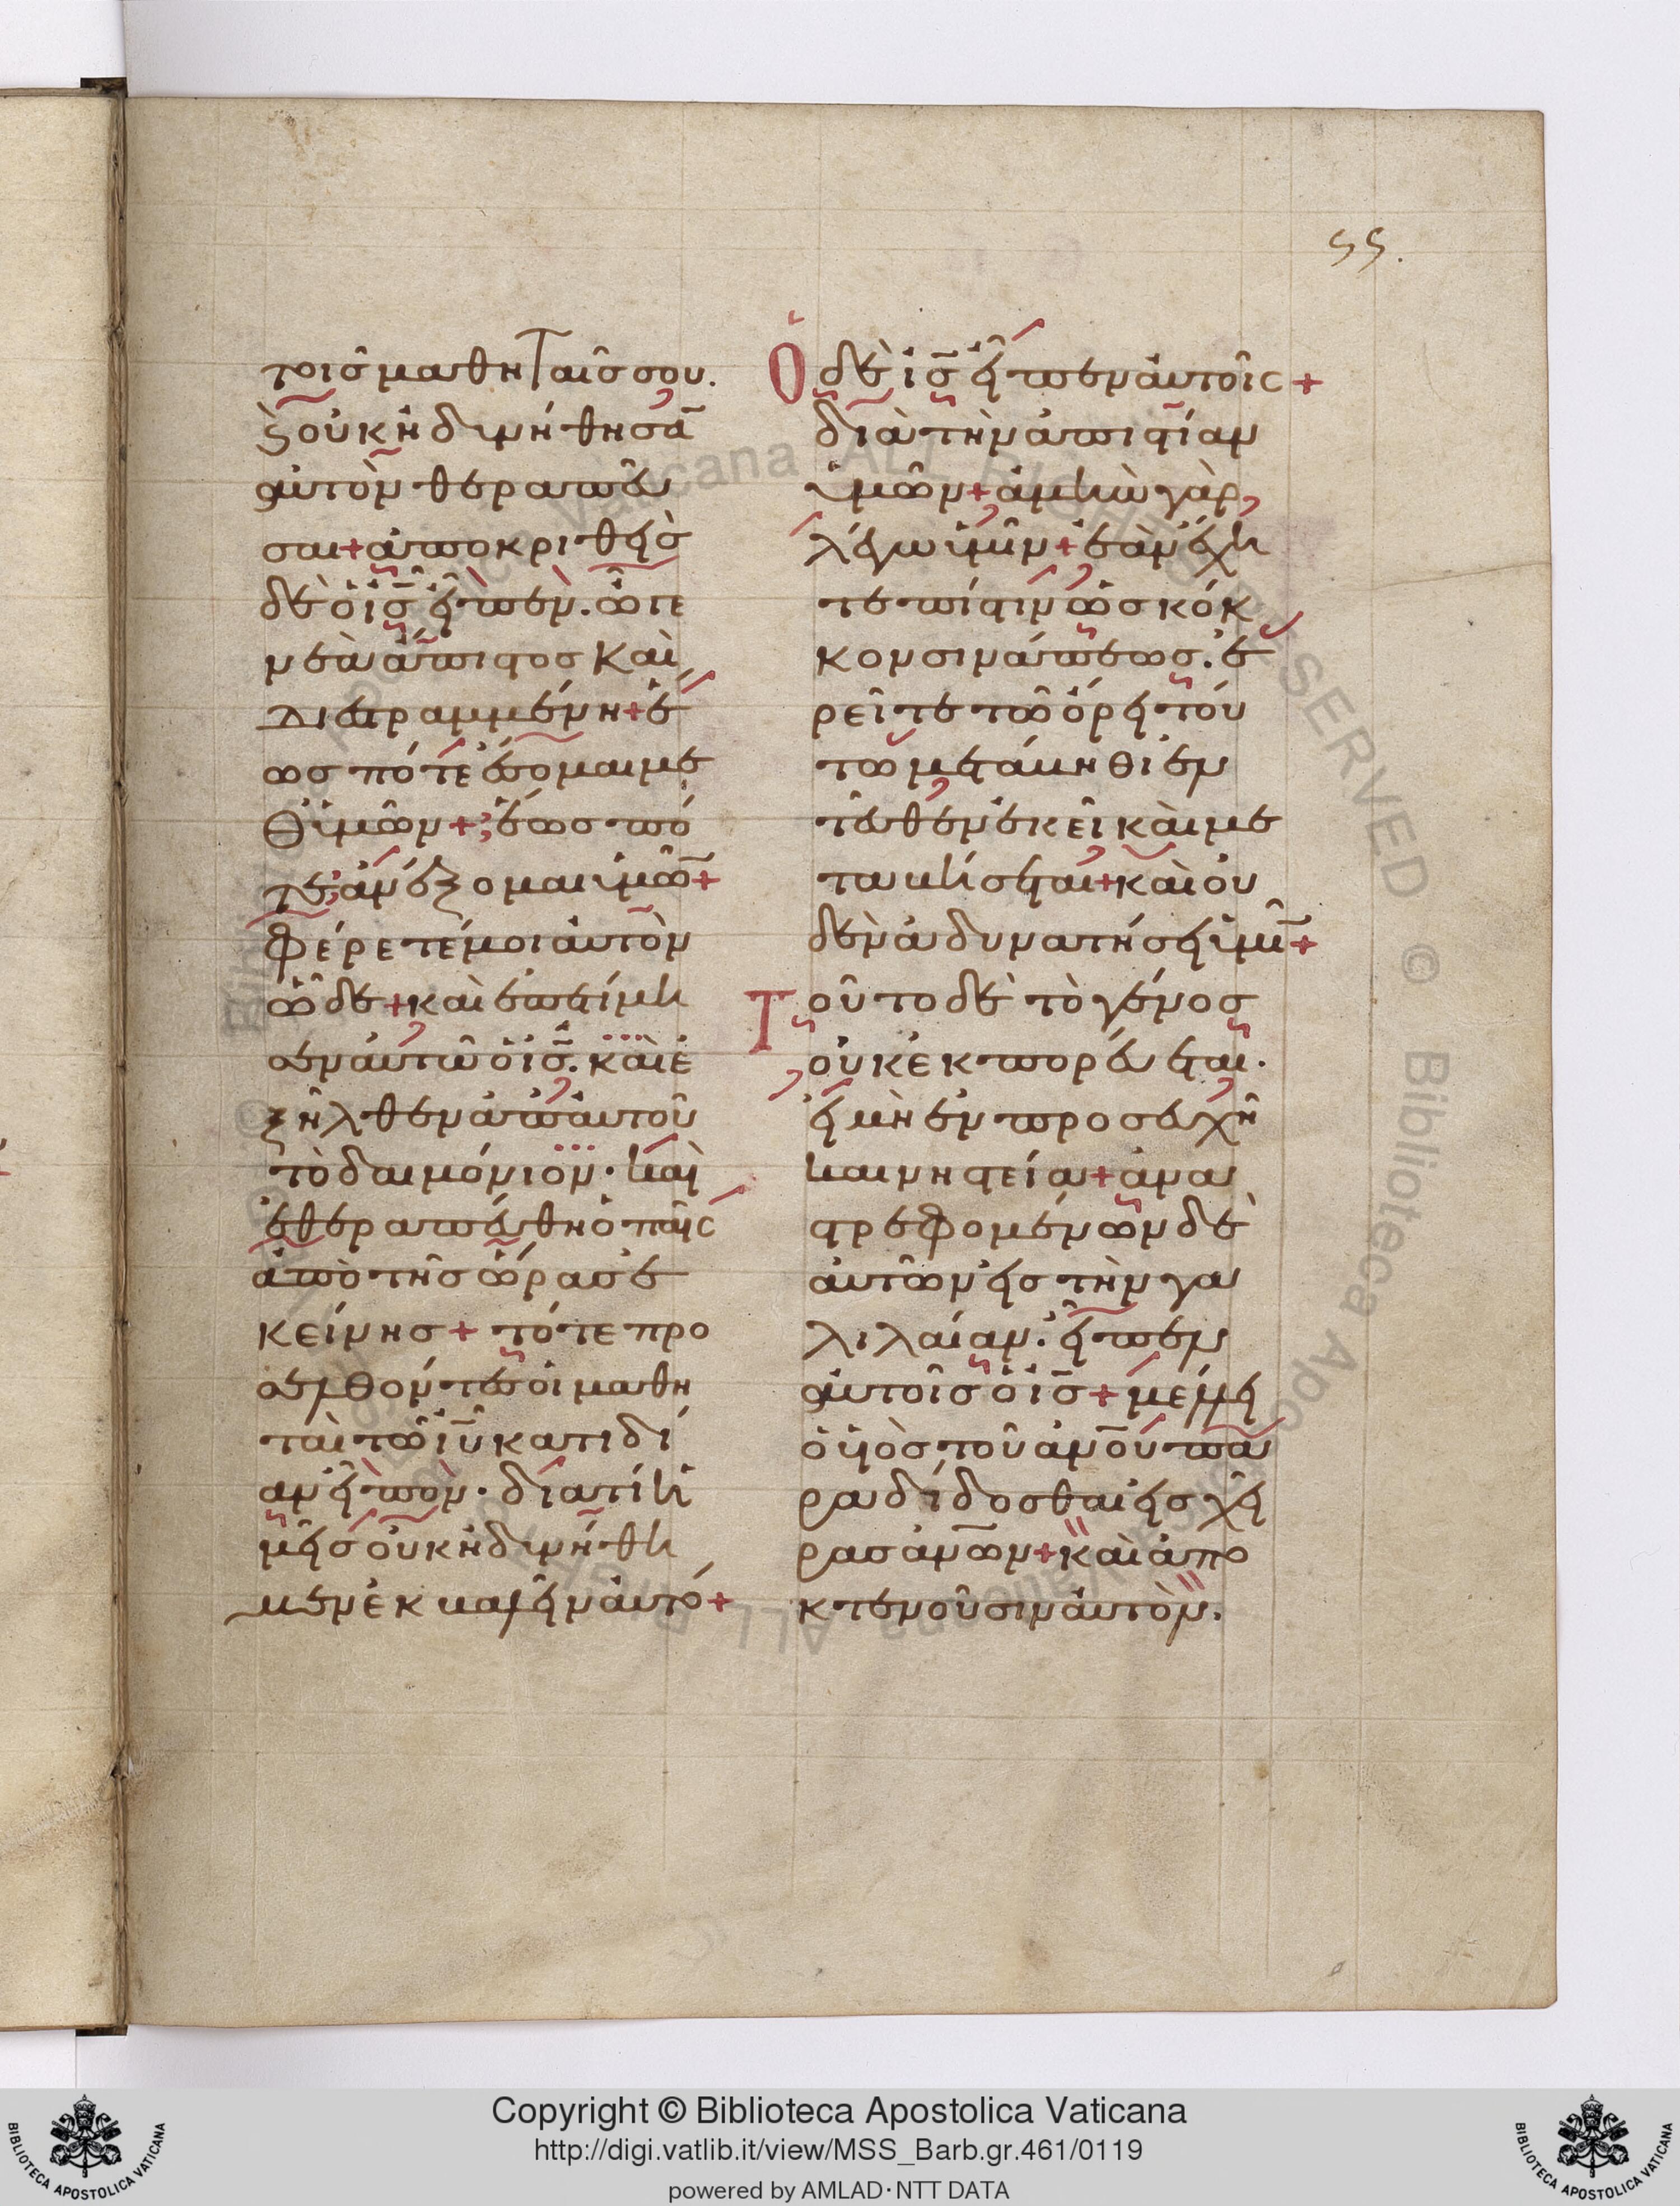 55.
τοῖς μαθηταῖς σου.
ϗ οὐκ ἠδυνήθησᾱ
αὐτὸν θεραπεῦ
σαι + ἀποκριθεὶς
δὲ ὁ ῑς̄ εἶπεν. ὦ γε
νεὰ ἄπιστος καὶ
διεστραμμένη + ἕ
ως πότε ἔσομαι με
θ ὑμῶν +; ἕως πό
τε; ἀνέξομαι ὑμῶ̄ +
φέρετέ μοι αὐτὸν
ὧδε + καὶ ἐπετίμη
σεν αὐτῶ ὁ ῑς̄. καὶ ἐ
ξῆλθεν ἀπ αὐτοῦ
τὸ δαιμόνιον. καὶ
ἐθεραπεύθη ὁ παῖς
ἀπὸ τῆς ὥρας ἐ
κείνης + τότε προ
σελθόντες οἱ μαθη
ταὶ τῶ ῑῡ κατιδί
αν εἶπον. διατί ἡ
μεῖς οὐκ ἠδυνήθη
μεν ἐκβαλεῖν αὐτό +
Ὁ δὲ ῑς̄ εἶπεν αὐτοῖς +
διὰ τὴν ἀπιστίαν
ὑμῶν + ἀμὴν γὰρ
λέγω ὑμῖν + ἐὰν ἔχη
τε πίστιν ὡς κόκ
κον σινάπεως. ἐ
ρεῖτε τῶ ὄρει τού
τω μετάβηθι ἐν
τεῦθεν ἐκεῖ καὶ με
ταβήσεται + καὶ οὐ
δὲν ἀδυνατήσει ὑμῖ̄ +
Τοῦτο δὲ τὸ γένος
οὐκ ἐκπορεύεται.
εἰ μὴ ἐν προσευχῆ
καὶ νηστεία + ἀνα
στρεφομένων δὲ
αὐτῶν εἰς τὴν γα
λιλαίαν. εἶπεν
αὐτοῖς ὁ ῑς̄ + μέλλει
ὁ υἱὸς τοῦ ἀν̄ου πα
ραδίδοσθαι εἰς χεῖ
ρας ἀν̄ων + καὶ ἀπο
κτενοῦσιν αὐτὸν.
Copyright © Biblioteca Apostolica Vaticana
http://digi.vatlib.it/view/MSS_Barb.gr.461/0119
powered by AMLAD·NTT DATA